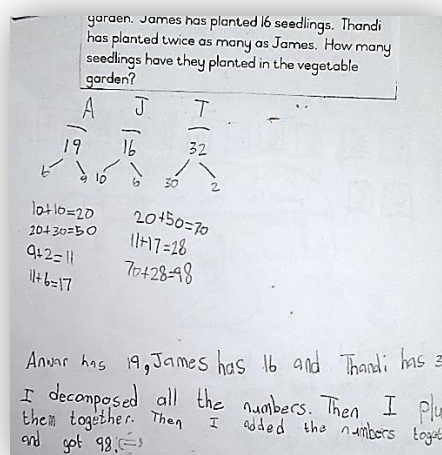 garden. James has planted 16 seedlings. Thandi
has planted twice as many as James. How many
seedlings have they planted in the vegetable
garden?
A J T
19 16 32
9 10 6 30 2
10+10=20
20+30=50
9+2=11
11+6=17
20+50=70
11+17=28
70+28=98
Anwar has 19, James has 16 and Thandi has 3
I decomposed all the numbers. Then I plu
them together. Then I added the numbers toget
and got 98.